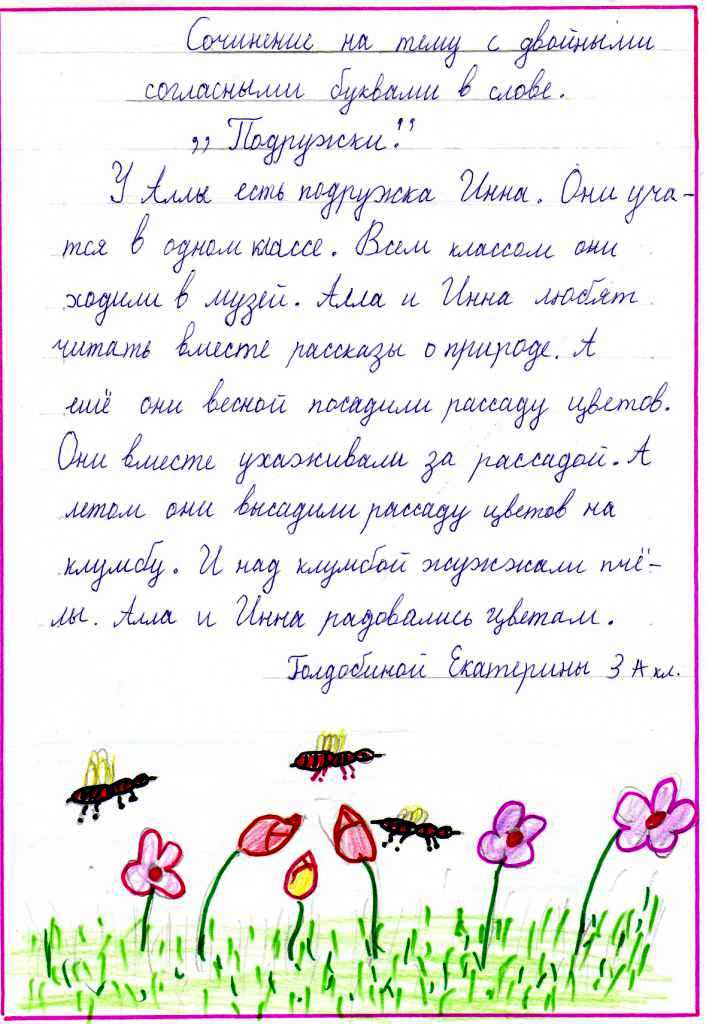 Сочинение на тему с двойными
согласными буквами в слове.
,, Подружки!"
У Аллы есть подружка Инна. Они уча-
тся в одном классе. Всем классом они
ходили в музей. Алла и Инна любят
читать вместе рассказы о природе. А
ещё они весной посадили рассаду цветов.
Они вместе ухаживали за рассадой. А
летом они высадили рассаду цветов на
клумбу. И над клумбой жужжали пчё-
лы. Алла и Инна радовались цветам.
Голдобиной Екатерины 3 А кл.